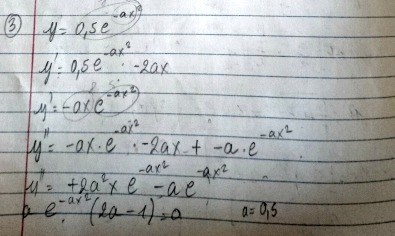 ③ y = 0,5e^{-ax²}
y' = 0,5e^{-ax²} · -2ax
y' = -axe^{-ax²}
y'' = -ax·e^{-ax²} · -2ax + -a·e^{-ax²}
y'' = +2a²xe^{-ax²} - ae^{-ax²}
a e^{-ax²} (2a-1) = a a = 0,5